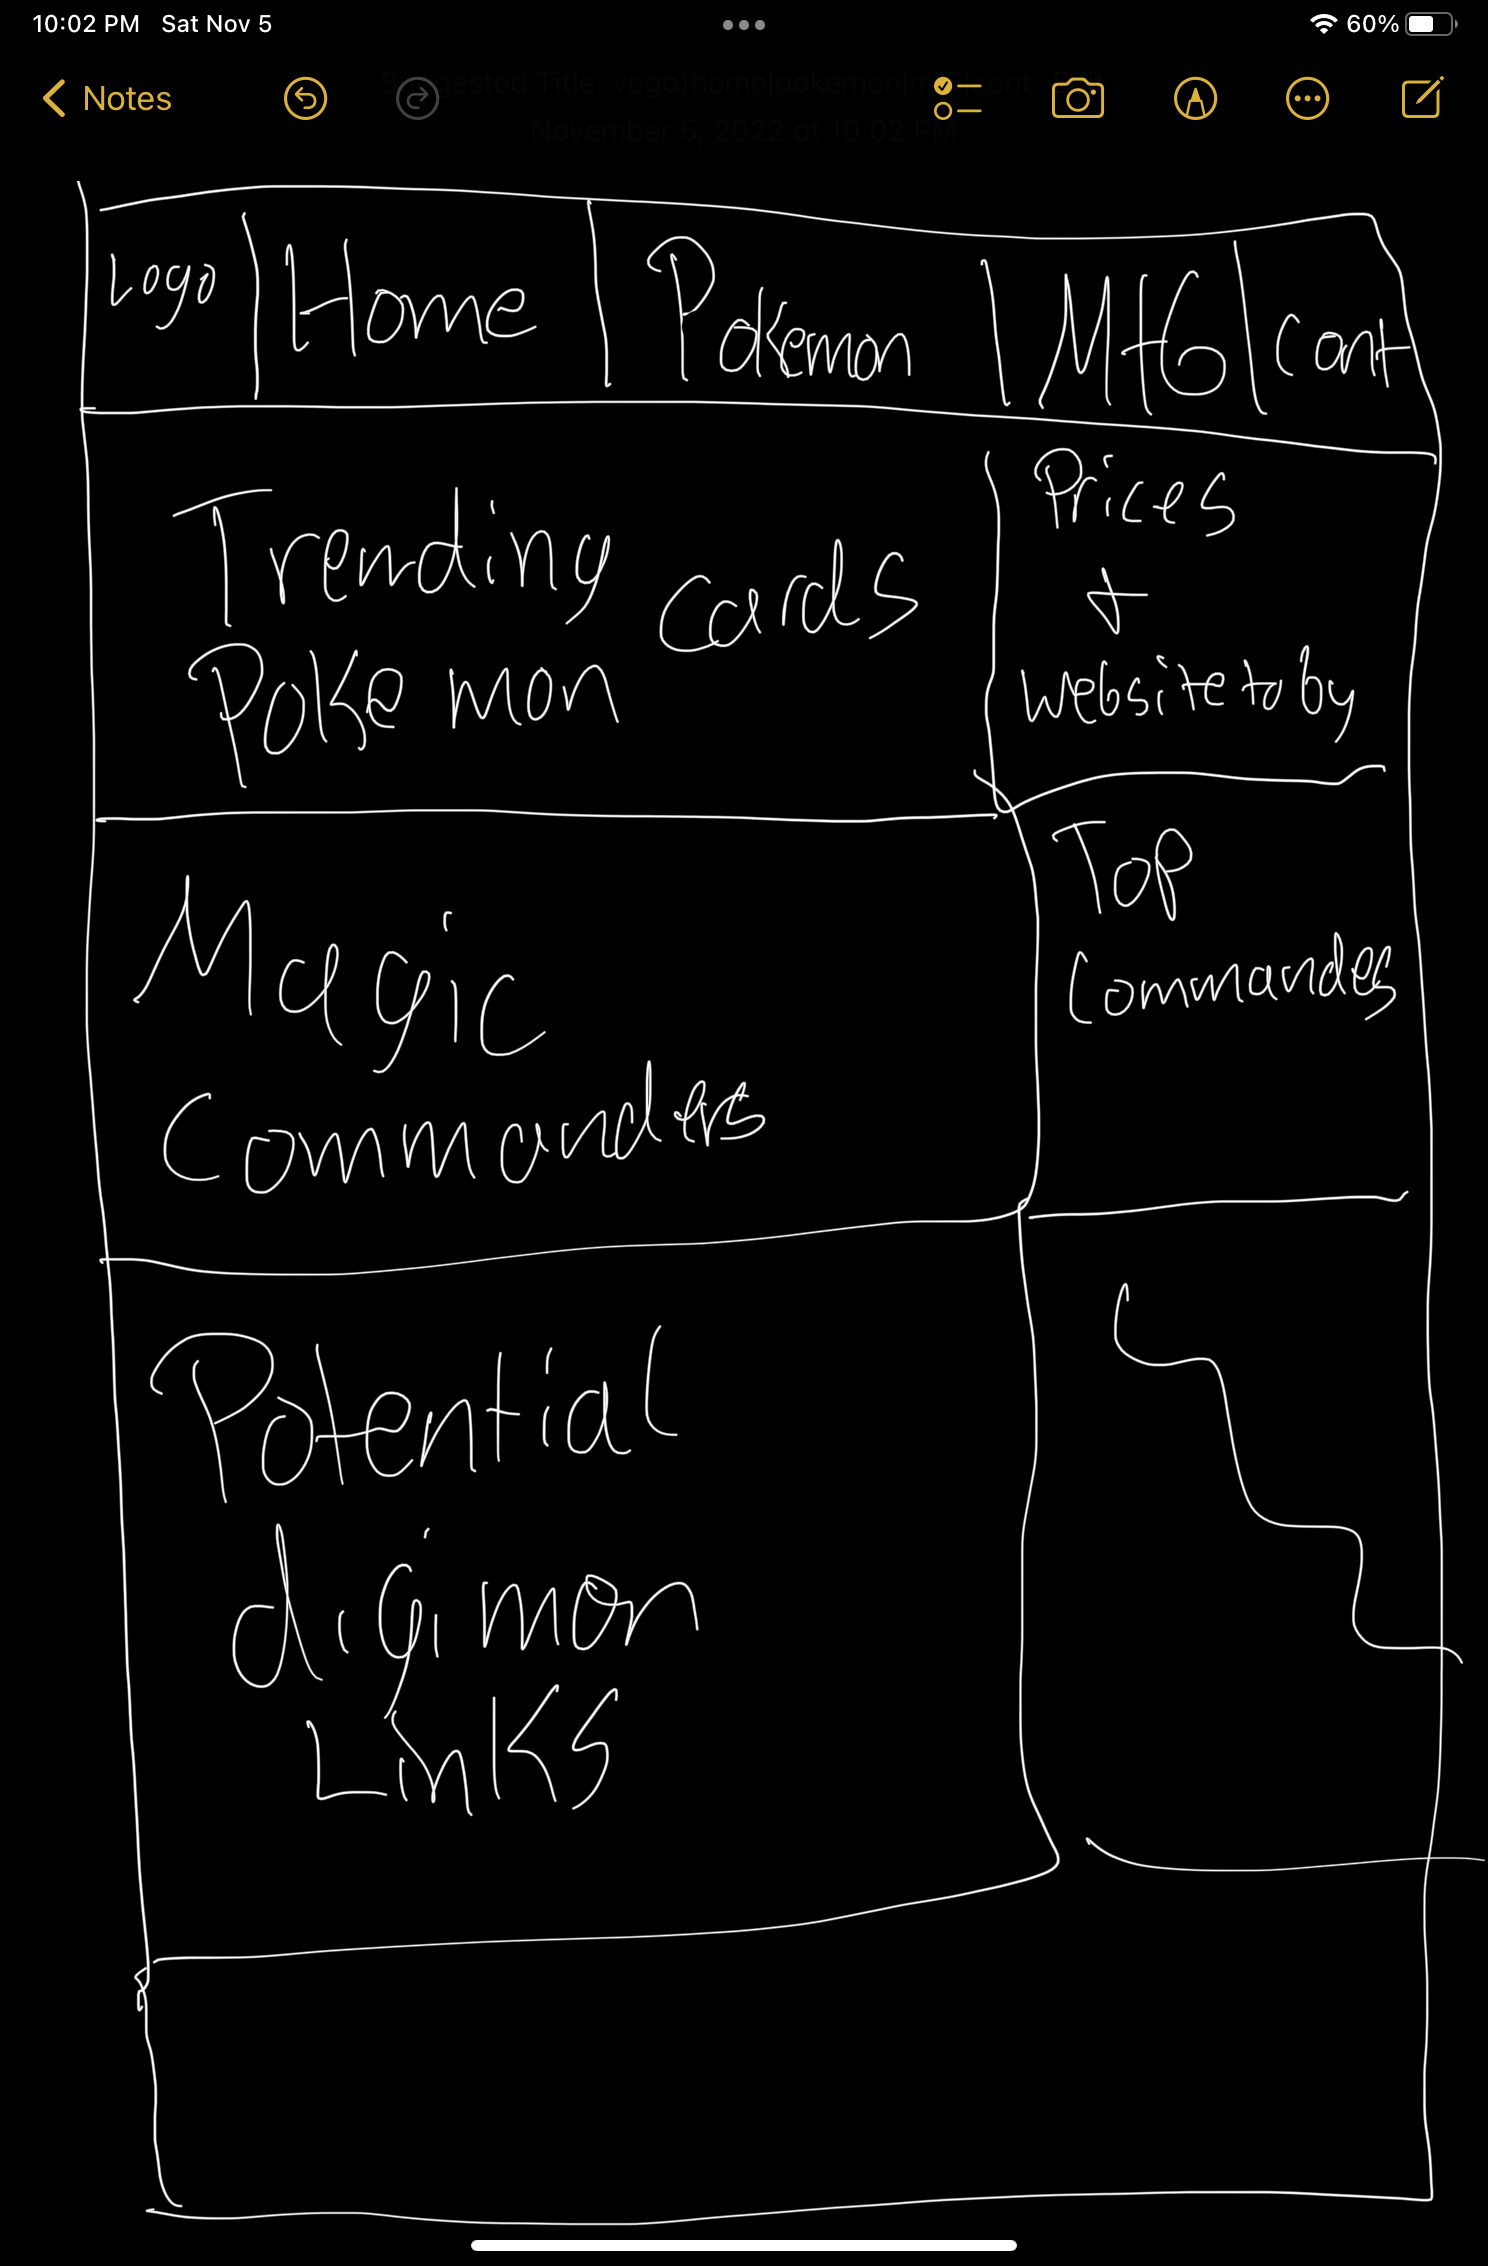 10:02 PM Sat Nov 5
60%
Notes
Suggested Title: vogo)home|pokemon|mtg|cont
November 5, 2022 at 10:02 PM
Logo Home Pokemon MtG cont
Trending cards
Pokemon
Prices
+
website to by
Magic
Commanders
Top
Commandes
Potential
digimon
Links